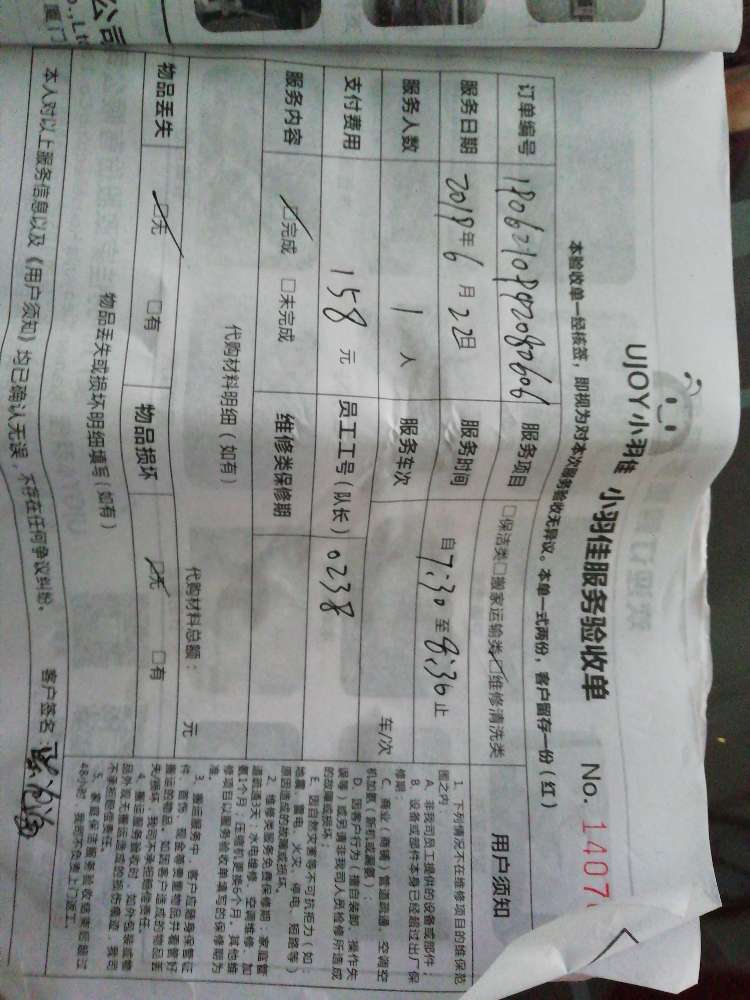 UJOY小羽佳 小羽佳服务验收单 No. 1407
本验收单一经核签，即视为对本次服务验收无异议。本单一式两份，客户留存一份（红）
订单编号 1806210892080606 服务项目 □保洁类□搬家运输类□维修清洗类
服务日期 2018年6月22日 服务时间 自7:30至8:30止
服务人数 1人 服务车次 车/次
支付费用 158元 员工工号（队长） 0238
服务内容 □完成 □未完成 维修类保修期
代购材料明细（如有）
代购材料总额： 元
物品丢失 □无 □有 物品损坏 □无 □有
物品丢失或损坏明细填写（如有）
本人对以上服务信息以及《用户须知》均已确认无误，不存在任何争议纠纷。 客户签名
用户须知
1、下列情况不在维修项目的维保范
围之内：
A、非我司员工提供的设备或部件；
B、设备或部件本身已经超过出厂保
修期；
C、商业（商铺）管道疏通、空调空
机加氨（新机或漏氨）；
D、因客户行为（擅自装卸、操作失
误等）或另请非我司人员检修所造成
的故障或损坏；
E、因自然灾害等不可抗拒力（如：
地震、雷电、火灾、停电、短路等）
原因造成的故障或损坏。
2、维修类服务免费保修期：家庭管
道疏通3天，水电维修、空调维修、加
氨1个月；压缩机更换6个月，其他维
修项目以服务验收单填写的保修期为
准。
3、搬运服务中，客户应随身保管证
件、首饰、现金等贵重物品并看管好
搬运的物品，如因客户造成的物品丢
失/损坏，我司不承担赔偿责任。
4、搬运服务验收时，如外包装或物
品外观无搬运造成的损伤痕迹，我司
不承担赔偿责任。
5、家庭保洁服务验收结束后超过
48小时，我司不负责上门返工。
公司
., Lt
厦门